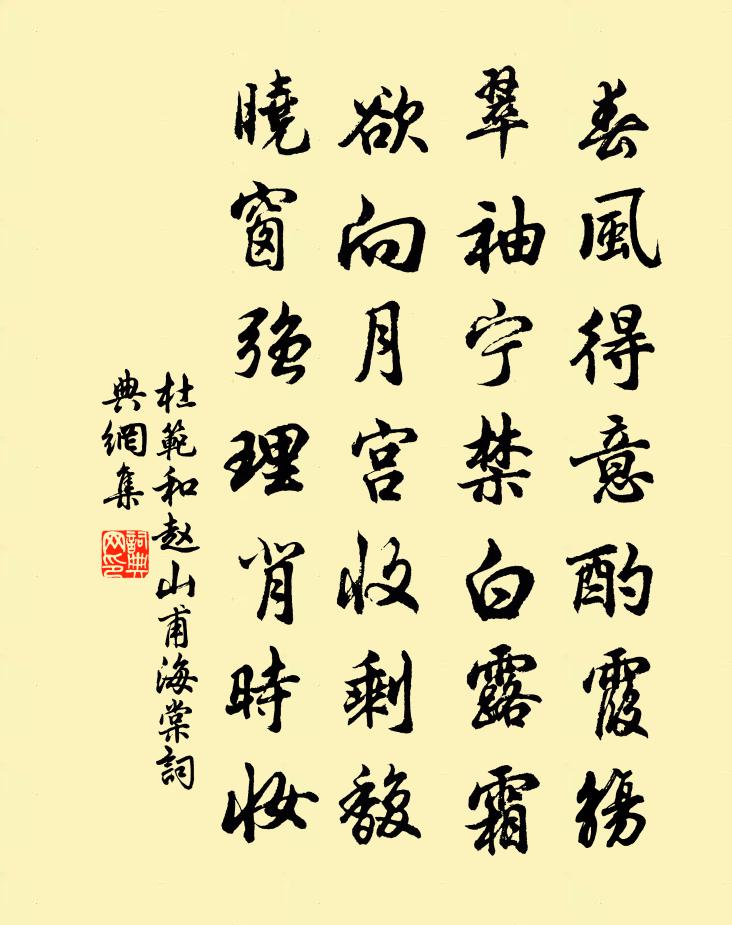 春風得意酌霞觴
翠袖宁禁白露霜
欲向月宫收剩馥
曉窗強理背時妝
杜範和赵山甫海棠詞
典網集
詞典网印